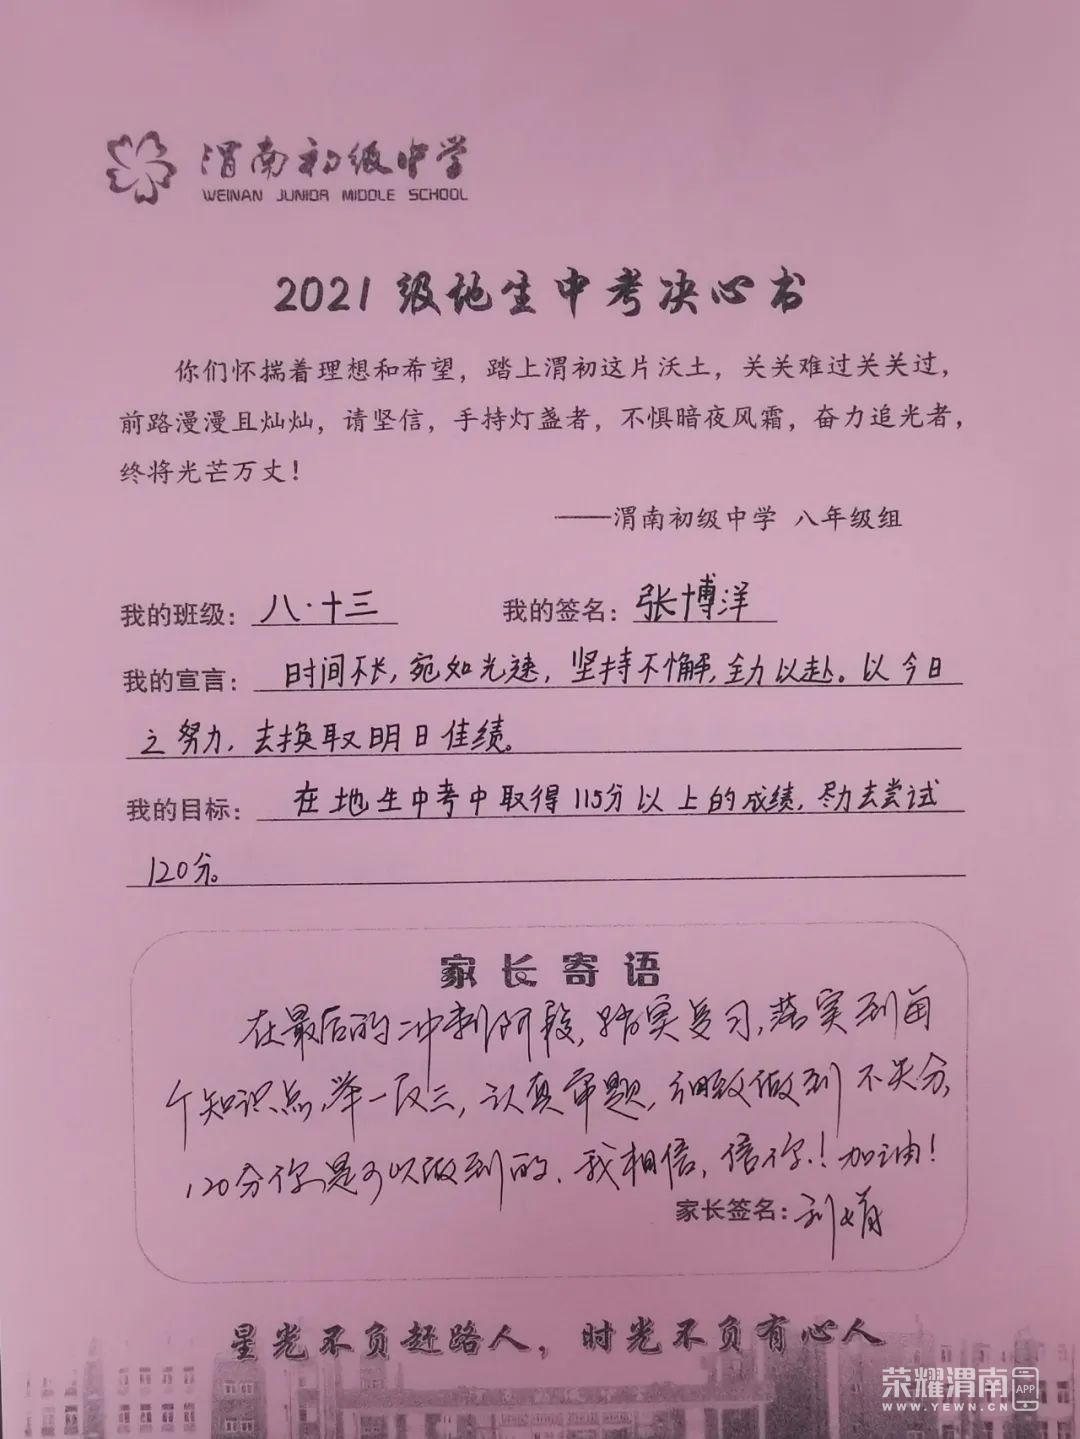 渭南初级中学
WEINAN JUNIOR MIDDLE SCHOOL
2021级地生中考决心书
你们怀揣着理想和希望，踏上渭初这片沃土，关关难过关关过，
前路漫漫且灿灿，请坚信，手持灯盏者，不惧暗夜风霜，奋力追光者，
终将光芒万丈！
——渭南初级中学 八年级组
我的班级：八·十三 我的签名：张博洋
我的宣言：时间不长，宛如光速，坚持不懈，全力以赴。以今日
之努力，去换取明日佳绩。
我的目标：在地生中考中取得115分以上的成绩，尽力去尝试
120分。
家长寄语
在最后的冲刺阶段，踏实复习，落实到每
个知识点，举一反三，认真审题，细致做到不失分，
120分你是可以做到的，我相信，信你！加油！
家长签名：刘娟
星光不负赶路人，时光不负有心人
渭南初级中学
荣耀渭南APP
WWW.YEWN.CN